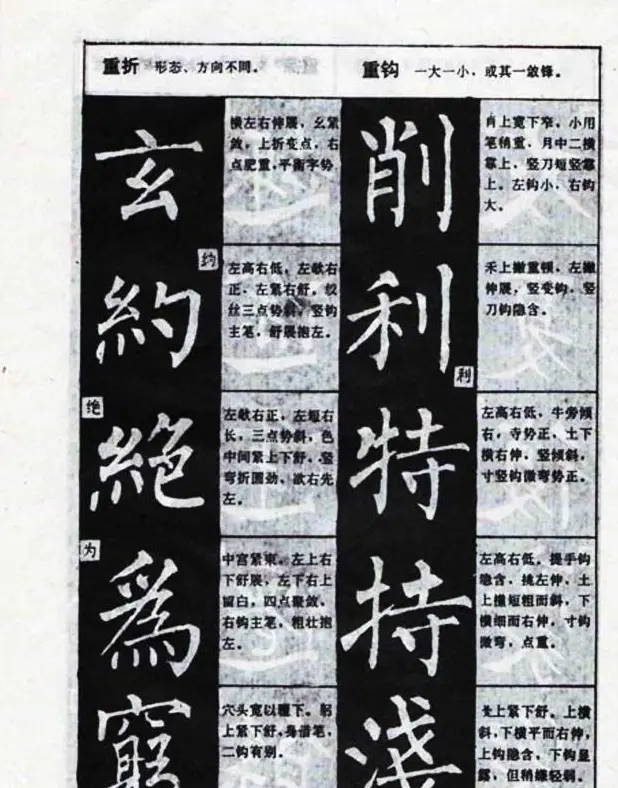 重折 形态、方向不同。
重钩 一大一小,或其一敛锋。
玄
横左右伸展,幺紧
敛,上折变点,右
点肥重,平衡字势
约
約
左高右低,左敧右
正,左紧右舒。绞
丝三点势斜,竖钩
主笔,舒展抱左。
绝
絕
左敧右正,左短右
长,三点势斜,色
中间紧上下舒。竖
弯折圆劲、欲右先
左。
为
爲
中宫紧束,左上右
下舒展,左下右上
留白,四点聚敛,
右钩主笔,粗壮抱
左。
窮
穴头宽以覆下。躬
上紧下舒,身借笔,
二钩有别。
削
肖上宽下窄,小用
笔稍重,月中二横
靠上,竖刀短竖靠
上。左钩小,右钩
大。
利
利
禾上撇重顿,左撇
伸展,竖变钩,竖
刀钩隐含。
特
左高右低,牛旁倾
右,寺势正,土下
横右伸,竖倾斜,
寸竖钩微弯势正。
持
左高右低,提手钩
隐含,挑左伸,土
上横短粗而斜,下
横细而右伸,寸钩
微弯,点重。
淺
戋上紧下舒。上横
斜,下横平而右伸,
上钩隐含,下钩显
露,但稍嫌轻弱。